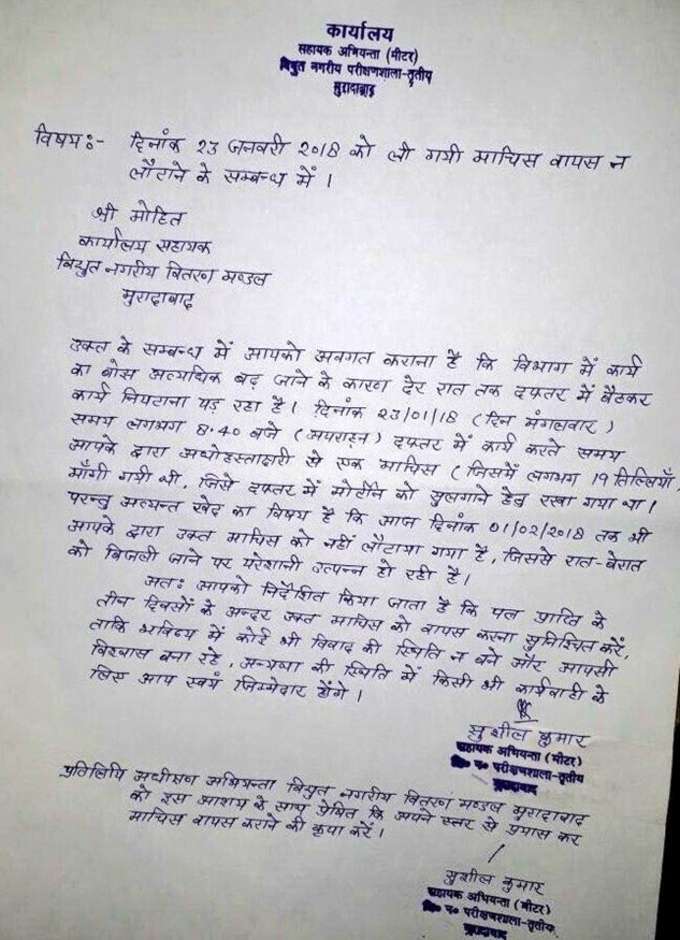 कार्यालय
सहायक अभियन्ता (मीटर)
विधुत नगरीय परीक्षणशाला-तृतीय
मुरादाबाद
विषयः- दिनांक 23 जनवरी 2018 को ली गयी माचिस वापस न
लौटाने के सम्बन्ध में ।
श्री मोहित
कार्यालय सहायक
विद्युत नगरीय वितरण मण्डल
मुरादाबाद
उक्त के सम्बन्ध में आपको अवगत कराना है कि विभाग में कार्य
का बोस अत्यधिक बढ़ जाने के कारण देर रात तक दफ्तर में बैठकर
कार्य निपटाना पड़ रहा है। दिनांक 23/01/18 (दिन मंगलवार)
समय लगभग 8.40 बजे (अपराह्न) दफ्तर में कार्य करते समय
आपके द्वारा अधोहस्ताक्षरी से एक माचिस (जिसमें लगभग 19 तिल्लियाँ,
माँगी गयी थी, जिसे दफ्तर में मोर्टीन को सुलगाने हेतु रखा गया था।
परन्तु अत्यन्त खेद का विषय है कि आज दिनांक 01/02/2018 तक भी
आपके द्वारा उक्त माचिस को नहीं लौटाया गया है, जिससे रात-बेरात
को बिजली जाने पर परेशानी उत्पन्न हो रही है।
अतः आपको निर्देशित किया जाता है कि पत्र प्राप्ति के
तीन दिवसों के अन्दर उक्त माचिस को वापस करना सुनिश्चित करें,
ताकि भविष्य में कोई भी विवाद की स्थिति न बने और आपसी
विश्वास बना रहे, अन्यथा की स्थिति में किसी भी कार्यवाही के
लिए आप स्वयं जिम्मेदार होंगे।
सुशील कुमार
सहायक अभियन्ता (मीटर)
वि० न० परीक्षणशाला-तृतीय
मुरादाबाद
प्रतिलिपि अधीक्षण अभियन्ता विद्युत नगरीय वितरण मण्डल मुरादाबाद
को इस आशय के साथ प्रेषित कि अपने स्तर से प्रयास कर
माचिस वापस कराने की कृपा करें।
सुशील कुमार
सहायक अभियन्ता (मीटर)
वि० न० परीक्षणशाला-तृतीय
मुरादाबाद